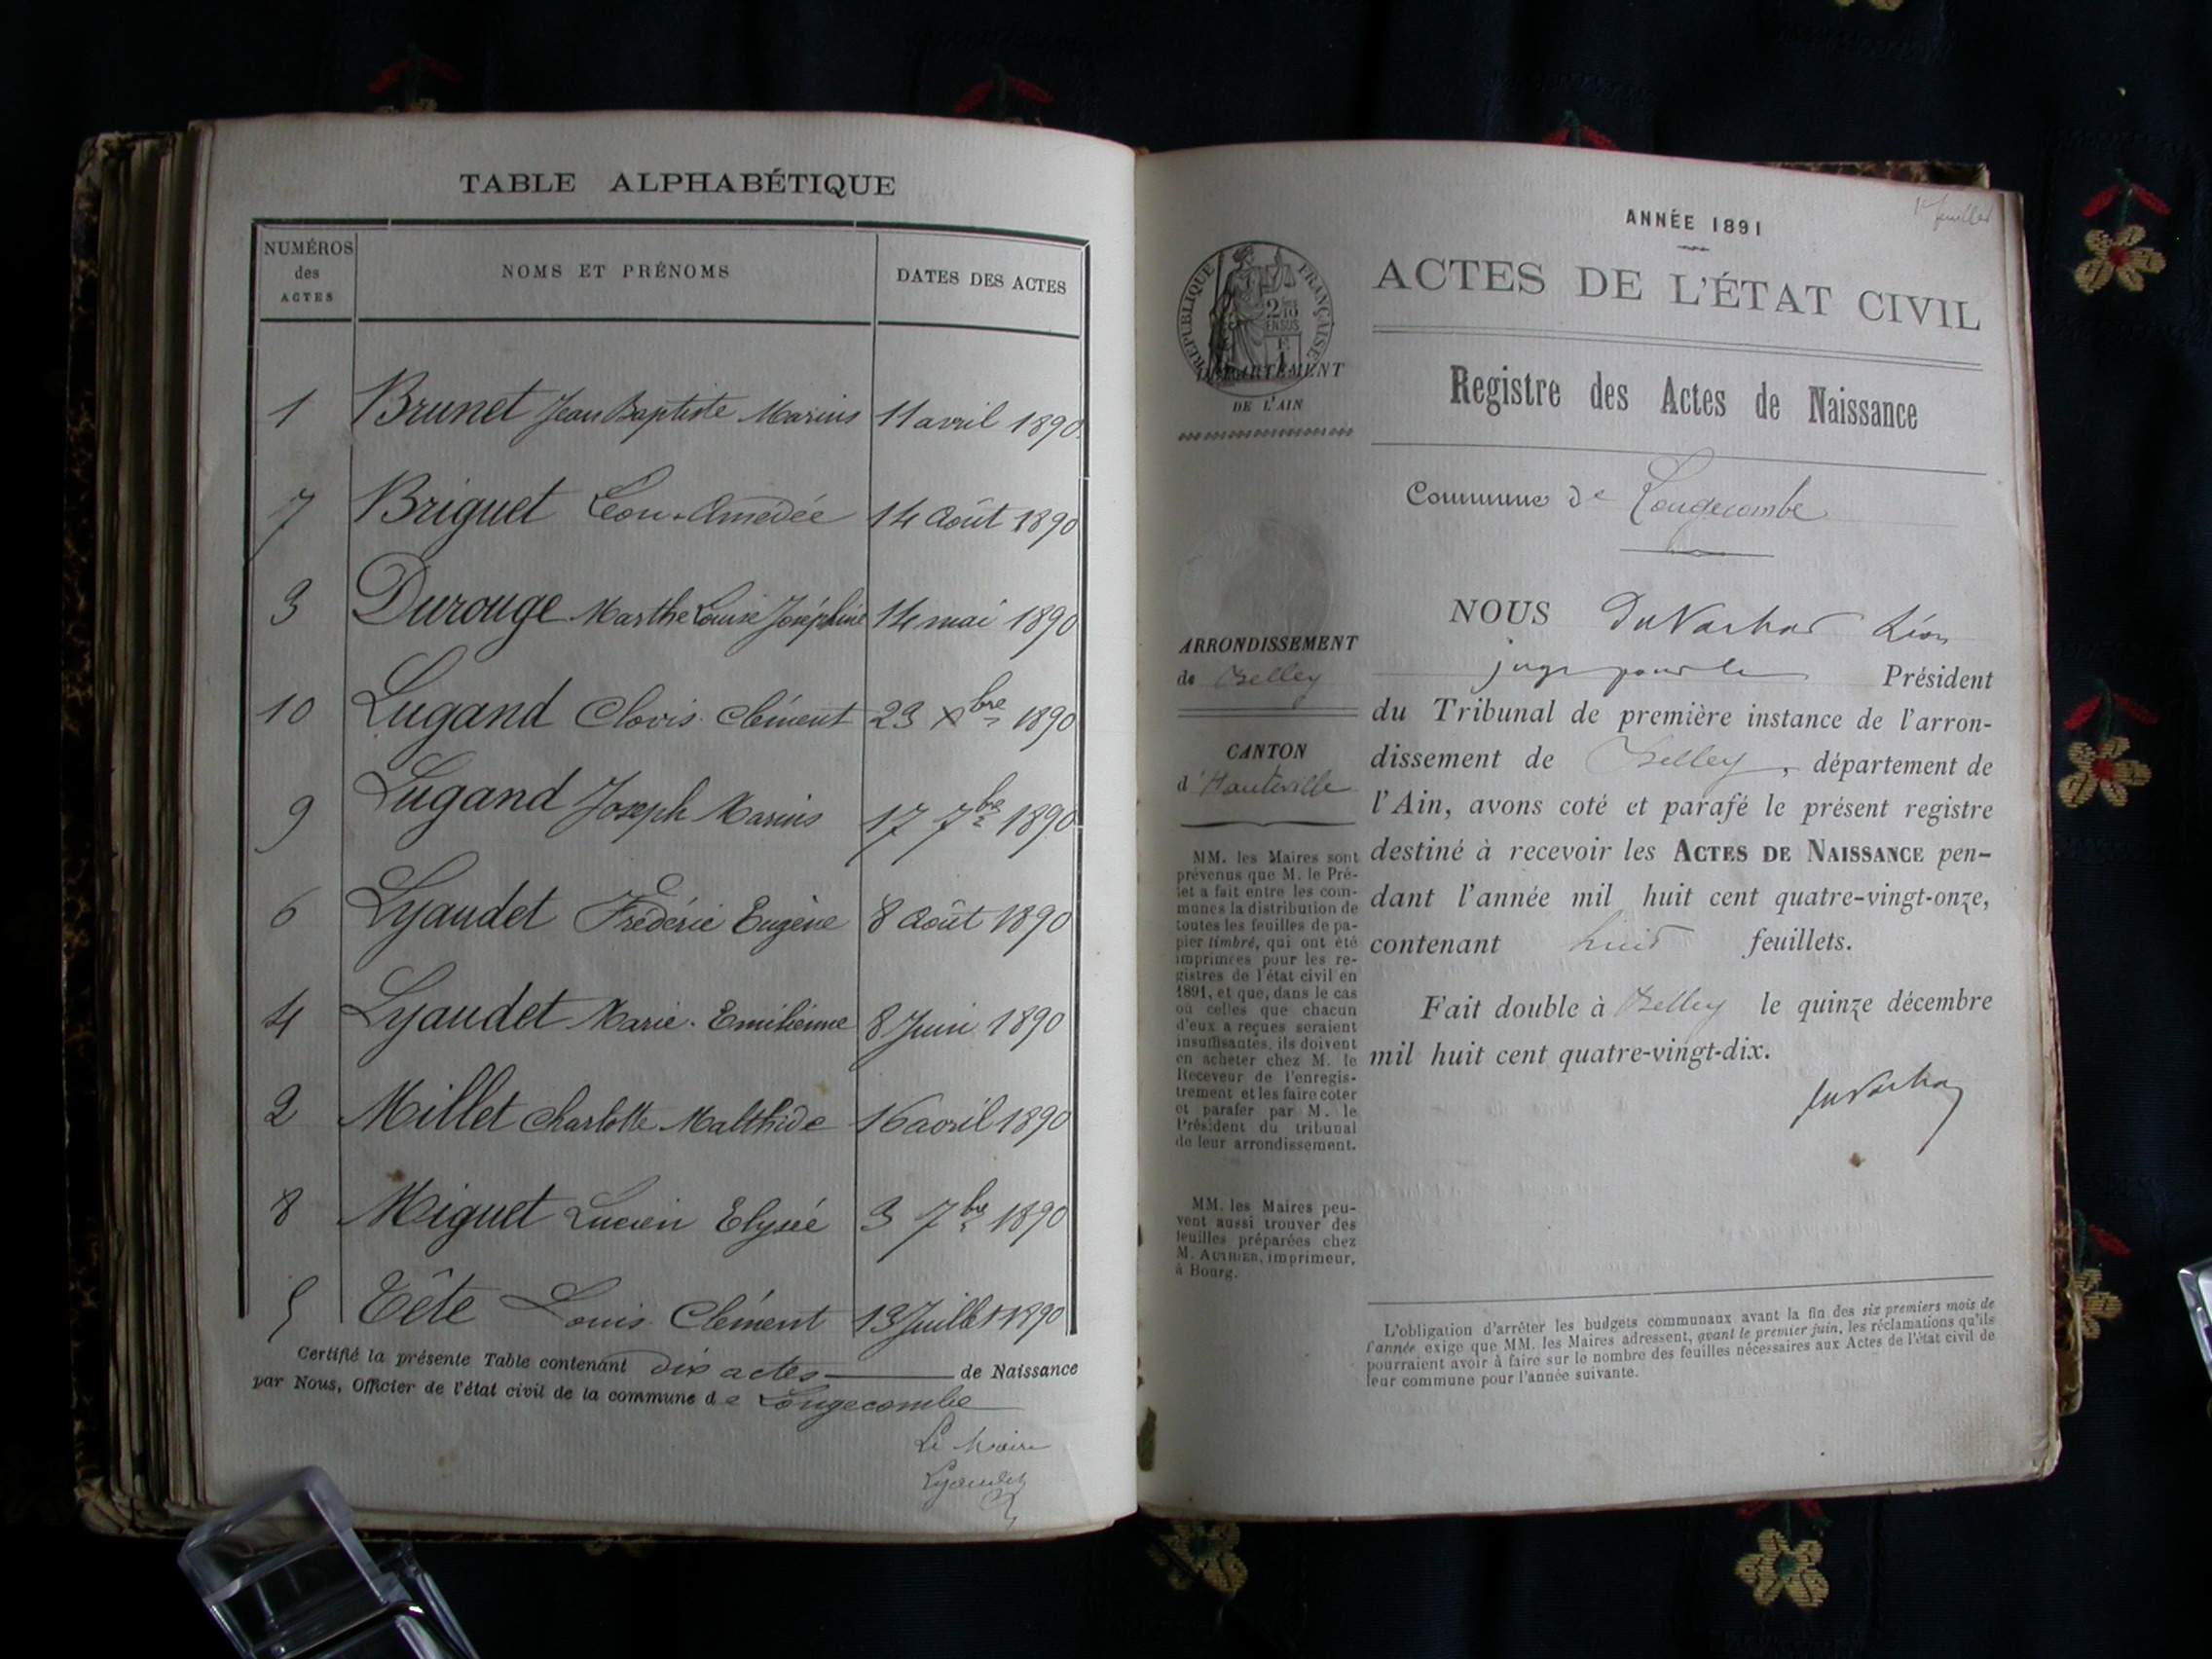 TABLE ALPHABÉTIQUE
NUMÉROS des ACTES
NOMS ET PRÉNOMS
DATES DES ACTES
1 Brunet Jean Baptiste Marius 11 avril 1890
7 Briguet Léon-Amédée 14 Août 1890
3 Durouge Marthe Louise Joséphine 14 mai 1890
10 Lugand Clovis Clément 23 Xbre 1890
9 Lugand Joseph Marius 17 7bre 1890
6 Lyaudet Frédéric Eugène 8 Août 1890
4 Lyaudet Marie-Emilienne 8 Juin 1890
2 Millet Charlotte Malthide 16 avril 1890
8 Miguet Lucien Elysée 3 7bre 1890
5 Tête Louis Clément 13 Juillet 1890
Certifié la présente Table contenant dix actes de Naissance
par Nous, Officier de l'état civil de la commune de Longecombe
Le Maire
Lyaudet
1er feuillet
ANNÉE 1891
RÉPUBLIQUE FRANÇAISE
2/10
EN SUS
DÉPARTEMENT
DE L'AIN
ACTES DE L'ÉTAT CIVIL
Registre des Actes de Naissance
Commune de Longecombe
ARRONDISSEMENT
de Belley
CANTON
d'Hauteville
MM. les Maires sont
prévenus que M. le Pré-
fet a fait entre les com-
munes la distribution de
toutes les feuilles de pa-
pier timbré, qui ont été
imprimées pour les re-
gistres de l'état civil en
1891, et que, dans le cas
où celles que chacun
d'eux a reçues seraient
insuffisantes, ils doivent
en acheter chez M. le
Receveur de l'enregis-
trement et les faire coter
et parafer par M. le
Président du tribunal
de leur arrondissement.
MM. les Maires peu-
vent aussi trouver des
feuilles préparées chez
M. AUTHIER, imprimeur,
à Bourg.
NOUS Léon
juge pour le Président
du Tribunal de première instance de l'arron-
dissement de Belley, département de
l'Ain, avons coté et parafé le présent registre
destiné à recevoir les ACTES DE NAISSANCE pen-
dant l'année mil huit cent quatre-vingt-onze,
contenant huit feuillets.
Fait double à Belley le quinze décembre
mil huit cent quatre-vingt-dix.
L'obligation d'arrêter les budgets communaux avant la fin des six premiers mois de
l'année exige que MM. les Maires adressent, avant le premier juin, les réclamations qu'ils
pourraient avoir à faire sur le nombre des feuilles nécessaires aux Actes de l'état civil de
leur commune pour l'année suivante.